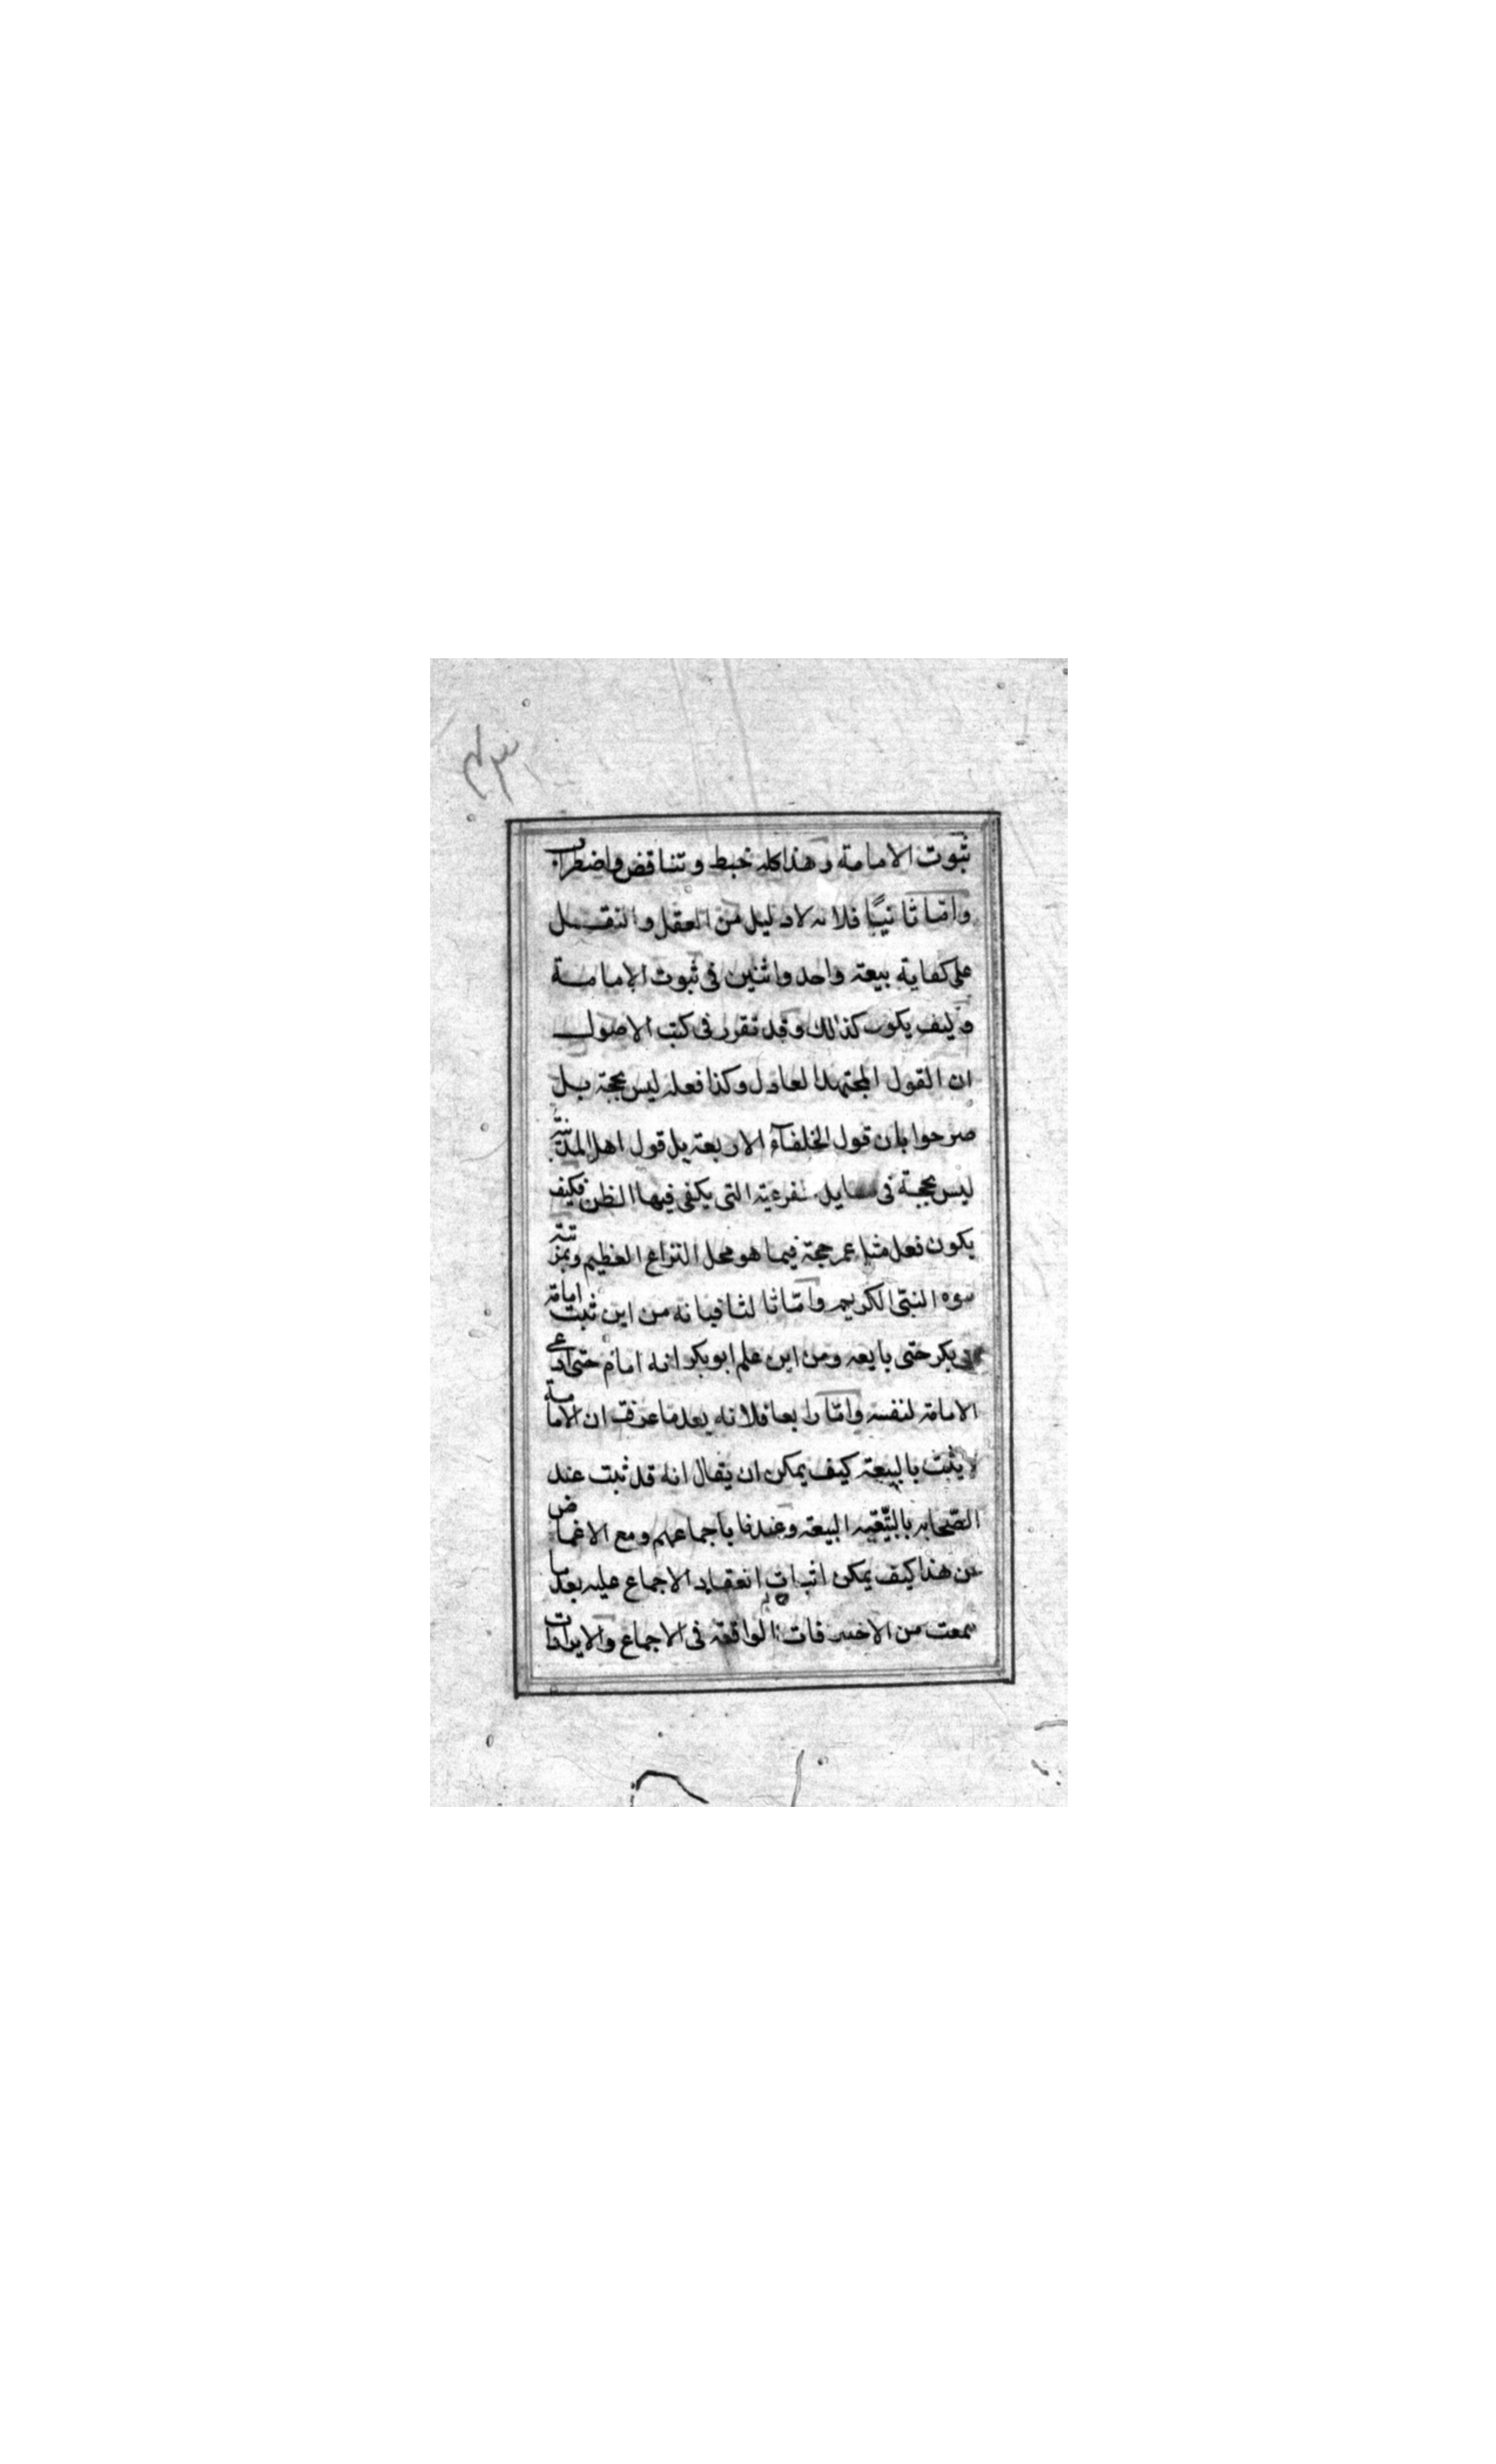 ٤٣
ثبوت الامامة وهذا كله خبط وتناقض واضطراب
واما ثانيًا فلانه لا دليل من العقل والنقل
على كفاية بيعة واحد واثنين فى ثبوت الامامة
وكيف يكون كذلك وقد تقرر فى كتب الاصول
ان القول المجتهد العادل وكذا فعله ليس بحجة بل
صرحوا بان قول الخلفآء الاربعة بل قول اهل المدينة
ليس بحجة فى مسايل الفرعية التى يكفى فيها الظن فكيف
يكون فعل مثل عمر حجة فيما هو محل النزاع العظيم وبمنزلة
سوه النبى الكريم واما ثالثا فبانه من اين ثبت امامة
ابى بكر حتى بايعه ومن اين علم ابو بكر انه امام حتى ادعى
الامامة لنفسه واما رابعا فلانه بعد ما عرفت ان الامامة
لا يثبت بالبيعة كيف يمكن ان يقال انه قد ثبت عند
الصحابه البيعة وعندنا باجماعهم ومع الاغماض
عن هذا كيف يمكن اثبات انعقاد الاجماع عليه بعد ما
سمعت من الواقعة فى الاجماع والايرادات